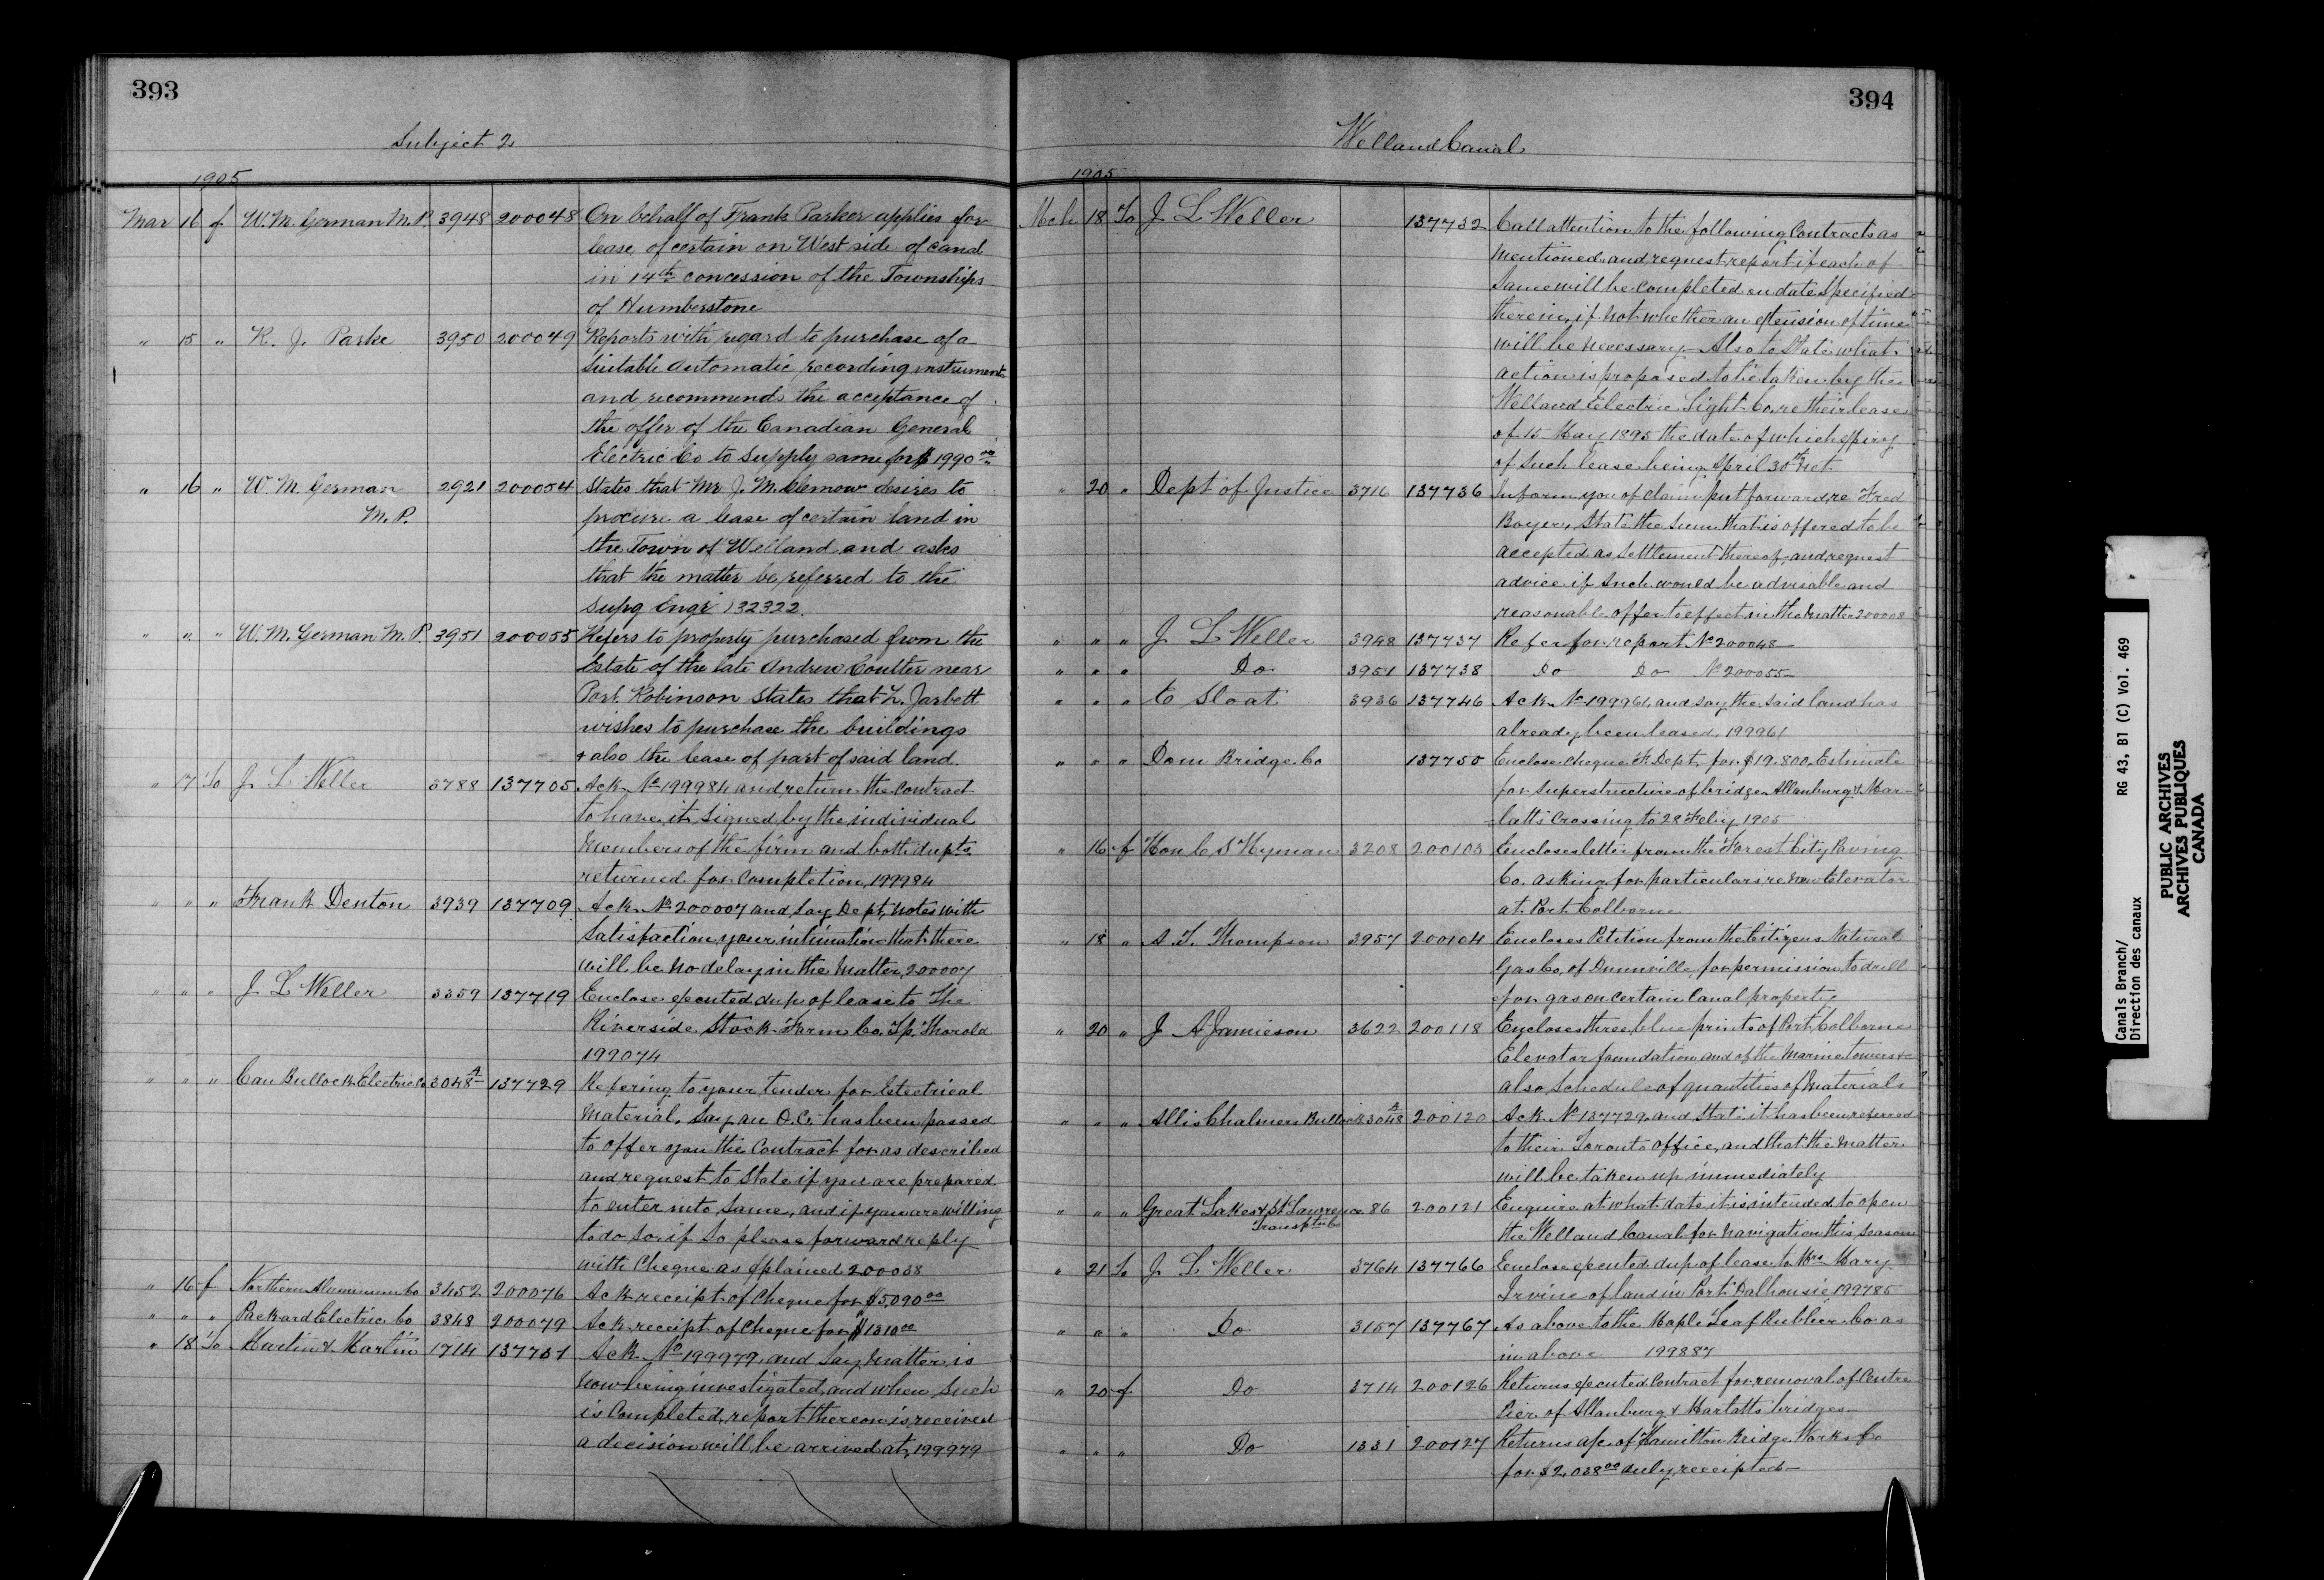 393
Subject 2
1905
Mar 16 f W. M. German M.P. 3948 200048 On behalf of Frank Parker applies for
lease of certain on West side of canal
in 14th concession of the Townships
of Humberstone
" 15 " R. J. Parke 3950 200049 Reports with regard to purchase of a
suitable automatic recording instrument
and recommends the acceptance of
the offer of the Canadian General
Electric Co to supply same for $1990 00
" 16 " W. M. German 2921 200054 States that Mr J. M. Clemow desires to
M. P. procure a lease of certain land in
the Town of Welland and asks
that the matter be referred to the
Supg Engr 132322
" " " W. M. German M. P. 3951 200055 Refers to property purchased from the
Estate of the late Andrew Coulter near
Port Robinson States that L. Jarbett
wishes to purchase the buildings
& also the lease of part of said land.
" 17 To J L Weller 3788 137705 Ack No 199984 and return the Contract
to have it signed by the individual
Members of the firm and both dupts
returned for Completion, 199984
" " " Frank Denton 3939 137709 Ack No 200007 and say Dept, notes with
Satisfaction your intimation that there
will be no delay in the Matter, 200007
" " " J L Weller 3359 137719 Enclose executed dup of lease to The
Riverside Stock Farm Co. Tp. Thorold
199074
" " " Can Bullock Electric Co 3048 A 137729 Refering to your tender for Electrical
Material, Say an O.C. has been passed
to offer you the Contract for as described
and request to State if you are prepared
to enter into Same, and if you are willing
to do so, if so please forward reply
with Cheque as explained 200038
" 16 f Northern Aluminum Co 3452 200076 Ack receipt of Cheque for $5,090 00
" " " Packard Electric Co 3848 200079 Ack receipt of Cheque for $1310 00
" 18 To Martin & Martin 1714 137731 Ack No 199979, and Say Matter is
now being investigated, and when Such
is Completed, report thereon is received
a decision will be arrived at, 199979
394
Welland Canal
1905
Mch 18 To J L Weller 137732 Call attention to the following Contracts as
Mentioned and request report if each of
Same will be completed on date specified
therein, if not whether an extension of time
will be necessary. Also to State what
action is proposed to be taken by the
Welland Electric Light Co, re their lease
of 15 May 1895 the date of which expiry
of Such lease being April 30th
" 20 " Dept of Justice 3716 137736 Inform you of claim put forward, re Fred
Boyer, State the Sum that is offered to be
accepted as Settlement thereof, and request
advice if Such would be advisable and
reasonable offer to effect in the Matter 200008
" " " J L Weller 3948 137737 Refer for report No 200048
" " " Do 3951 137738 Do Do No 200055
" " " C Sloat 3936 137746 Ack No 199961, and say the said land has
already been leased, 199961
" " " Dom Bridge Co 137750 Enclose cheque Dept, for $19,800, Estimate
for Superstructure of bridge Allanburg & Mar-
-latts Crossing to 28 Feby 1905
" 16 f Hon C S Hyman 3208 200103 Encloses letter from the Forest City Paving
Co. asking for particulars re new Elevator
at Port Colborne
" 18 " A. T. Thompson 3957 200104 Encloses Petition from the Citizens Natural
Gas Co, of Dunnville, for permission to drill
for gas on certain Canal property
" 20 " J A Jamieson 3622 200118 Encloses three blue prints of Port Colborne
Elevator foundation and of the Marine towers &
also Schedule of quantities of Materials
" " " Allis Chalmers Bullock 3048 A 200120 Ack No 137729, and State it has been refered
to their Toronto Office, and that the Matter
will be taken up immediately
" " " Great Lakes & St Lawrence 86 200121 Enquire at what date it is intended to open
Transptn Co the Welland Canal for Navigation this season
" 21 To J L Weller 3764 137766 Enclose executed dup of lease to Mrs Mary
Irvine of land in Port Dalhousie 199785
" " " Do 3157 137767 As above to the Maple Leaf Rubber Co as
in above 199887
" 20 f Do 3714 200126 Returns executed Contract for removal of Centre
Pier of Allanburg & Marlatts bridges
" " " Do 1331 200127 Returns a/c of Hamilton Bridge Works Co
for $2,038 00 duly receipted
Canals Branch/ RG 43, B1 (C) Vol. 469
Direction des canaux
PUBLIC ARCHIVES
ARCHIVES PUBLIQUES
CANADA